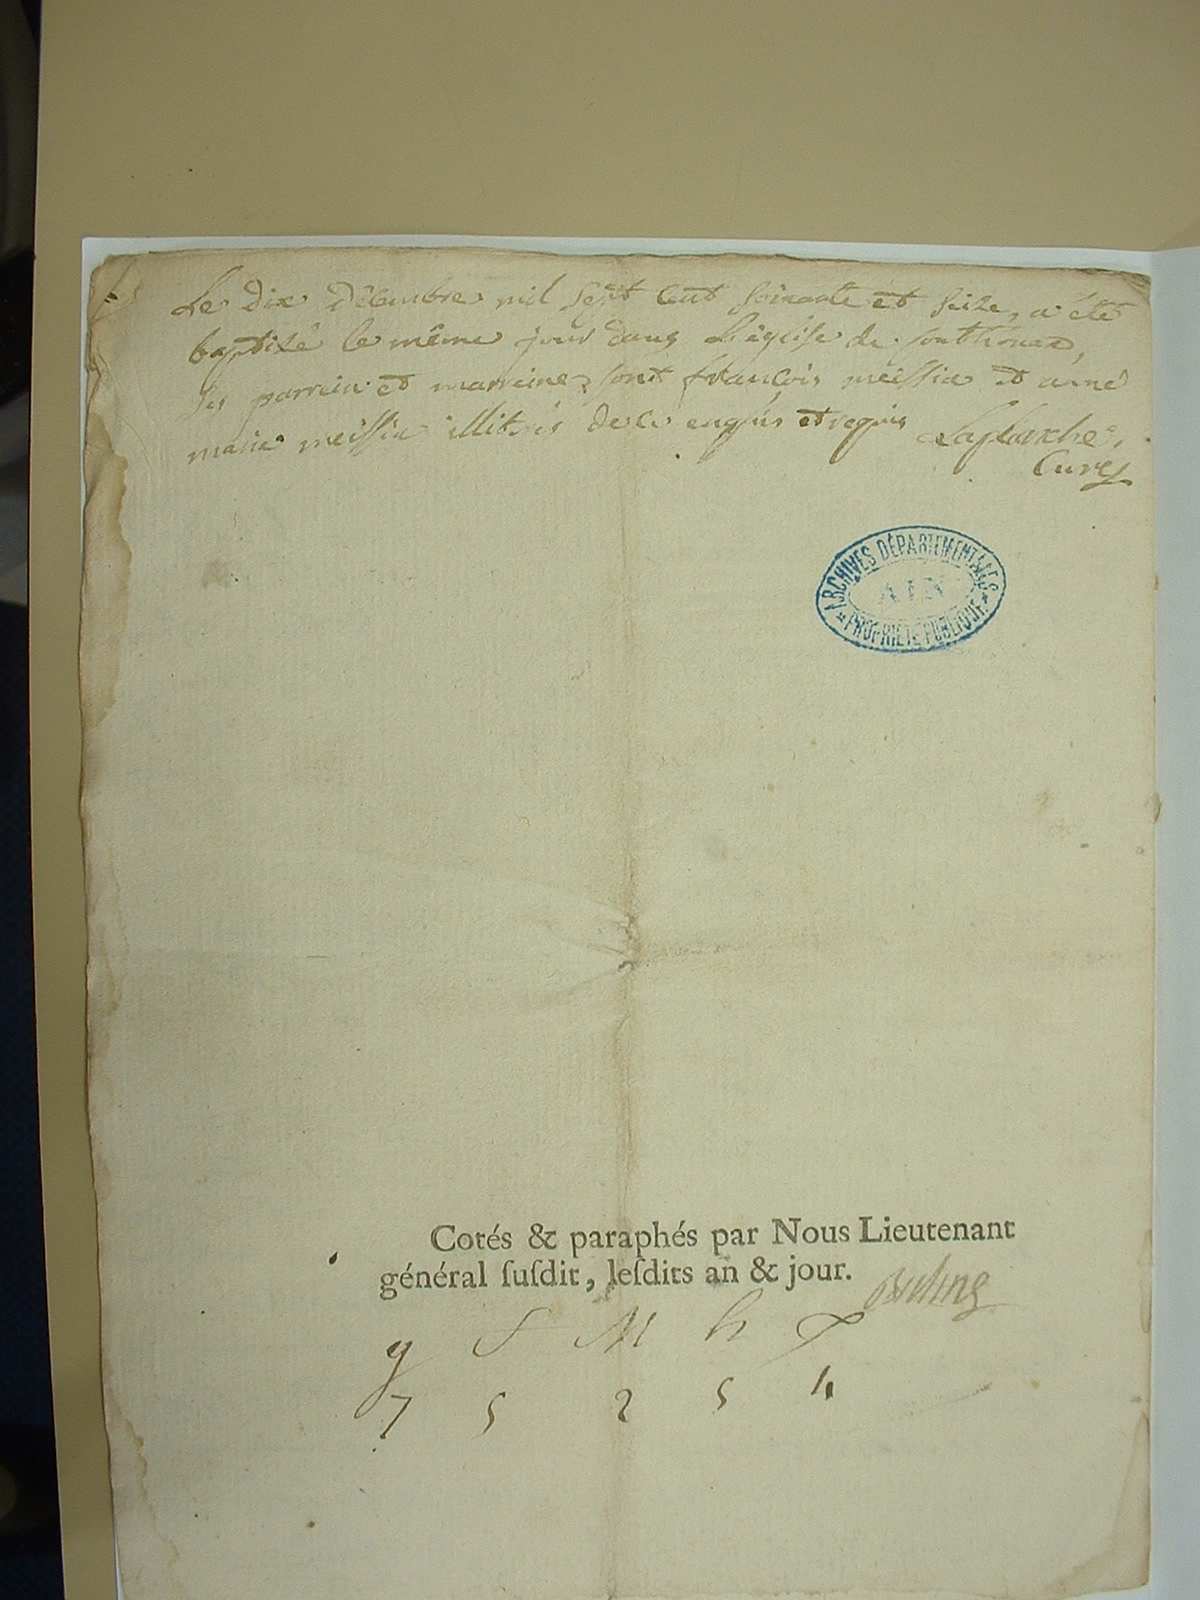 Le dix Décembre mil sept cent soixante et seize, a été
baptisé le même jour dans l'église de Sonthonax,
ses parrein et marreine sont françois meissia et anne
marie meissia illiterés de ce enquis et requis Laplanche,
Curé
ARCHIVES DÉPARTEMENTALES
AIN
PROPRIÉTÉ PUBLIQUE
Cotés & paraphés par Nous Lieutenant
général ſuſdit, leſdits an & jour.
g S M h
7 5 2 5 4